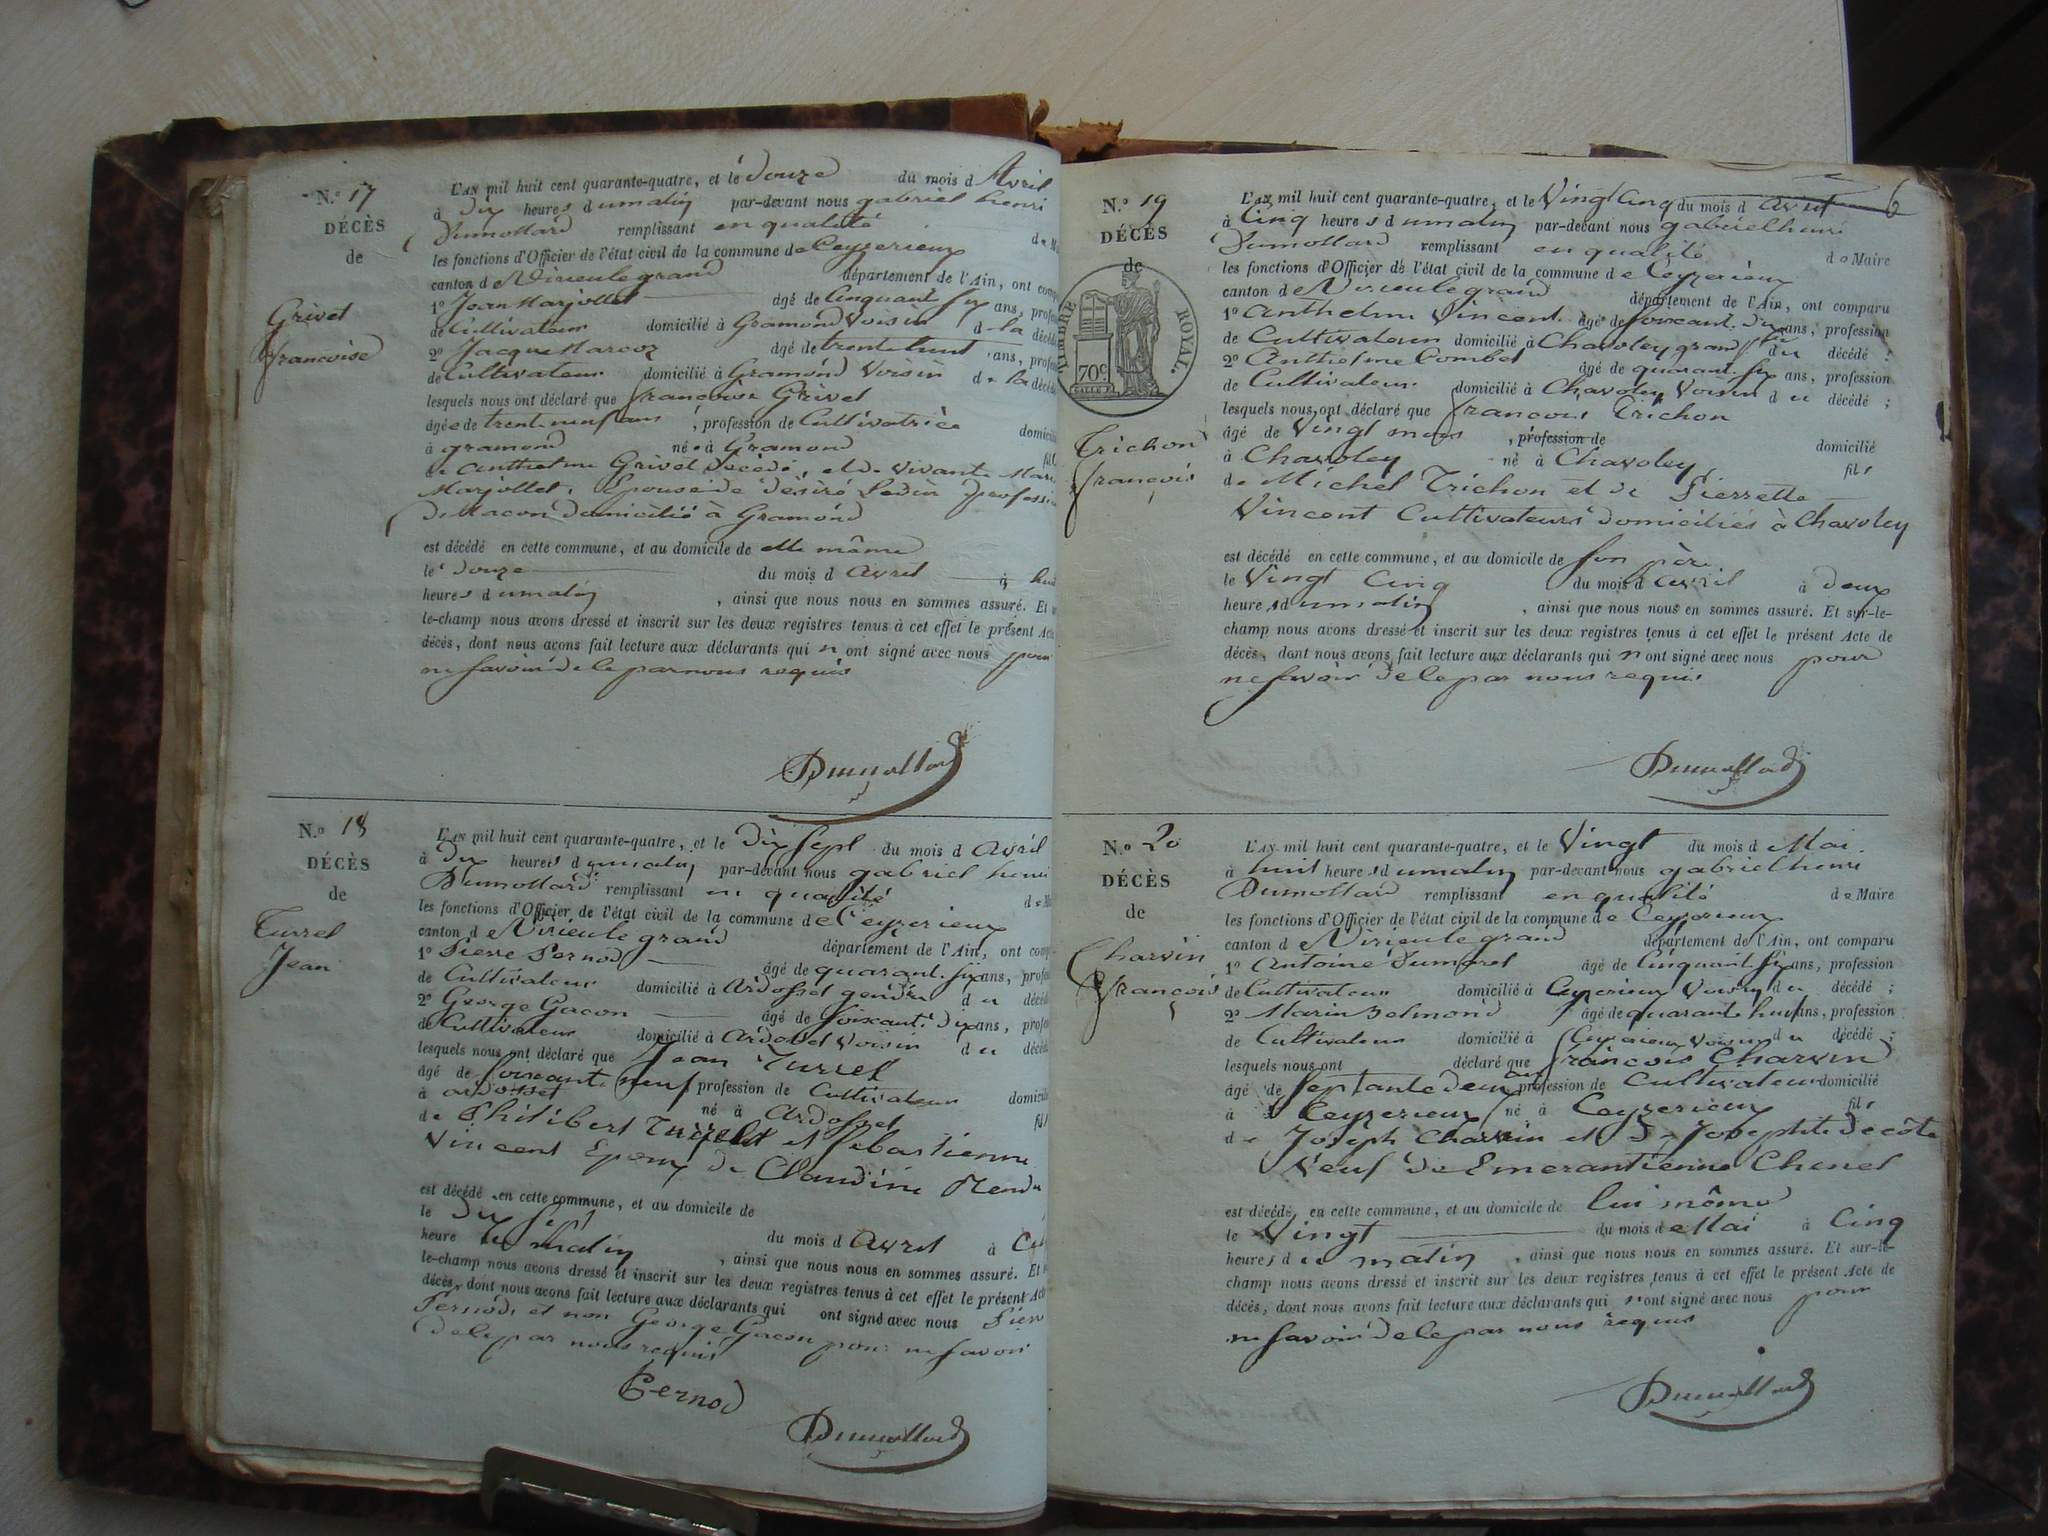 N.º 17
DÉCÈS
de
Grivet
francoise
L'AN mil huit cent quarante-quatre, et le douze du mois d Avril
à dix heures du matin par-devant nous gabriel henri
Dumollard remplissant en qualité de M
les fonctions d'Officier de l'état civil de la commune de Ceyzerieux
canton de Virieu le grand département de l'Ain, ont comp
1º Jean Marjollet âgé de Cinquant six ans, profes
de Cultivateur domicilié à Gramond Voisin de la décéd
2º Jacque Marcoz âgé de trente huit ans, profes
de Cultivateur domicilié à Gramond Voisin de la décéd
lesquels nous ont déclaré que francoise Grivet
âgée de trent neuf ans, profession de Cultivatrice domicili
à gramond née à Gramond fil
de anthelme Grivet décédé, et de vivante Mari
Marjollet, Epouse de désiré professi
de Macon domicilié à Gramond
est décédé en cette commune, et au domicile de elle même
le douze du mois d avril à hui
heures du matin, ainsi que nous nous en sommes assuré. Et
le-champ nous avons dressé et inscrit sur les deux registres tenus à cet effet le présent Acte
décès, dont nous avons fait lecture aux déclarants qui n ont signé avec nous pour
ne savoir de le par nous requis
Dumollard
N.º 18
DÉCÈS
de
Turrel
Jean
L'AN mil huit cent quarante-quatre, et le dix sept du mois d avril
à dix heures du matin par-devant nous gabriel henri
Dumollard remplissant en qualité de M
les fonctions d'Officier de l'état civil de la commune de Ceyzerieux
canton de Virieu le grand département de l'Ain, ont comp
1º Pierre Pernod âgé de quarant. six ans, profes
de Cultivateur domicilié à Ardosset gendre du décéd
2º George Gacon âgé de soixante dix ans, profes
de Cultivateur domicilié à Ardosset Voisin du décéd
lesquels nous ont déclaré que Jean Turrel
âgé de soixante neuf profession de Cultivateur domicili
à ardosset né à Ardosset fil
de Philibert Turrel et sebastienne
Vincent Epoux de Claudine
est décédé en cette commune, et au domicile de
le dix sept du mois d avril à
heure du matin, ainsi que nous nous en sommes assuré. Et
le-champ nous avons dressé et inscrit sur les deux registres tenus à cet effet le présent Acte
décès, dont nous avons fait lecture aux déclarants qui ont signé avec nous Pierr
Pernod et non George Gacon pour ne savoir
de le par nous requis
Pernod
Dumollard
6
N.º 19
DÉCÈS
de
TIMBRE ROYAL.
70c
Trichon
francois
L'AN mil huit cent quarante-quatre, et le Vingt Cinq du mois d avril
à Cinq heures du matin par-devant nous gabriel henri
Dumollard remplissant en qualité de Maire
les fonctions d'Officier de l'état civil de la commune de Ceyzerieux
canton de Virieu le grand département de l'Ain, ont comparu
1º Anthelme Vincent âgé de soixant. dix ans, profession
de Cultivateur domicilié à Chavoley grand père du décédé;
2º Anthelme Combet âgé de quarant. six ans, profession
de Cultivateur domicilié à Chavoley Voisin du décédé;
lesquels nous ont déclaré que francois Trichon
âgé de Vingt mois, profession de domicilié
à Chavoley né à Chavoley fils
de Michel Trichon et de Pierrette
Vincent Cultivateurs domiciliés à Chavoley
est décédé en cette commune, et au domicile de son père
le Vingt Cinq du mois d avril à deux
heures du matin, ainsi que nous nous en sommes assuré. Et sur-le-
champ nous avons dressé et inscrit sur les deux registres tenus à cet effet le présent Acte de
décès, dont nous avons fait lecture aux déclarants qui n ont signé avec nous pour
ne savoir de le par nous requis
Dumollard
N.º 20
DÉCÈS
de
Charvin
François
L'AN mil huit cent quarante-quatre, et le Vingt du mois d Mai
à huit heures du matin par-devant nous gabriel henri
Dumollard remplissant en qualité de Maire
les fonctions d'Officier de l'état civil de la commune de Ceyzerieux
canton de Virieu le grand département de l'Ain, ont comparu
1º Antoine Dumoret âgé de Cinquant six ans, profession
de Cultivateur domicilié à Ceyzerieux Voisin du décédé;
2º Marin Belmond âgé de quarante huit ans, profession
de Cultivateur domicilié à Ceyzerieux Voisin du décédé;
lesquels nous ont déclaré que francois Charvin
âgé de septante deux ans profession de Cultivateur domicilié
à Ceyzerieux né à Ceyzerieux fils
de Joseph Charvin et de Josephte de côte
Veuf de Emerantienne Chenet
est décédé en cette commune, et au domicile de lui même
le Vingt du mois d Mai à Cinq
heures du matin, ainsi que nous nous en sommes assuré. Et sur-le-
champ nous avons dressé et inscrit sur les deux registres tenus à cet effet le présent Acte de
décès, dont nous avons fait lecture aux déclarants qui n ont signé avec nous pour
ne savoir de le par nous requis
Dumollard